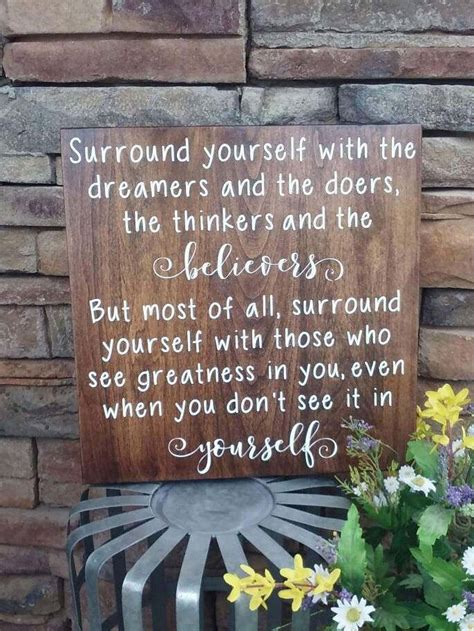 Surround yourself with the
dreamers and the doers,
the thinkers and the
believers
But most of all, surround
yourself with those who
see greatness in you, even
when you don't see it in
yourself